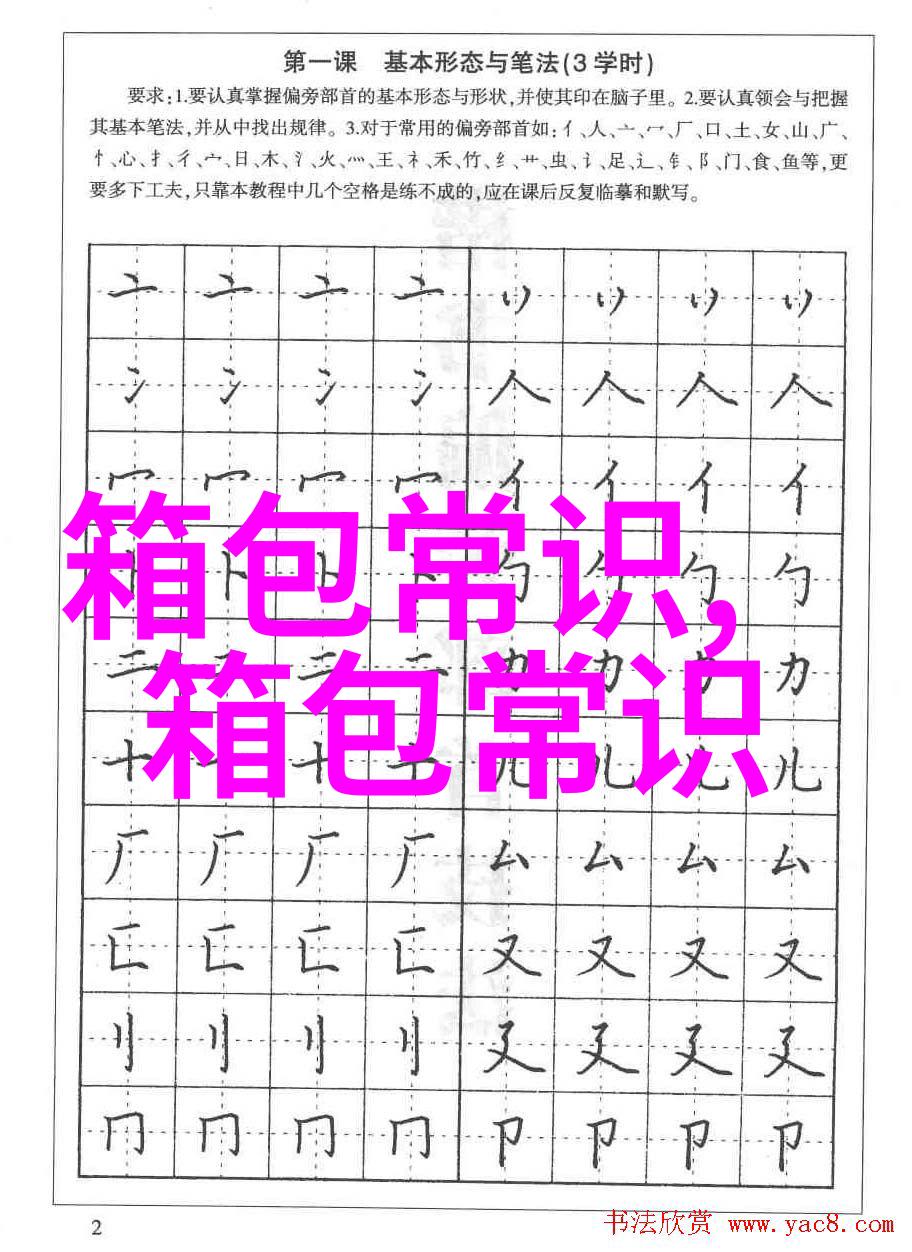 第一课 基本形态与笔法(3学时)
要求:1.要认真掌握偏旁部首的基本形态与形状,并使其印在脑子里。2.要认真领会与把握
其基本笔法,并从中找出规律。3.对于常用的偏旁部首如:亻、人、亠、冖、厂、口、土、女、山、广、
忄、心、扌、彳、宀、日、木、氵、火、灬、王、礻、禾、竹、纟、艹、虫、讠、足、辶、钅、阝、门、食、鱼等,更
要多下工夫,只靠本教程中几个空格是练不成的,应在课后反复临摹和默写。
亠 亠 亠 亠 丷 丷 丷 丷
冫 冫 冫 冫 人 人 人 人
冖 冖 冖 冖 亻 亻 亻 亻
卜 卜 卜 卜 勹 勹 勹 勹
箱包常识,
二 二 二 二 力 力 力 力
箱包常识
十 十 十 十 儿 儿 儿 儿
厂 厂 厂 厂 厶 厶 厶 厶
匚 匚 匚 匚 又 又 又 又
刂 刂 刂 刂 廴 廴 廴 廴
冂 冂 冂 冂 卩 卩 卩 卩
2
书法欣赏 www.yac8.com